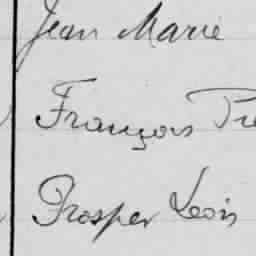 Jean Marie
François Pie
Prosper Léon